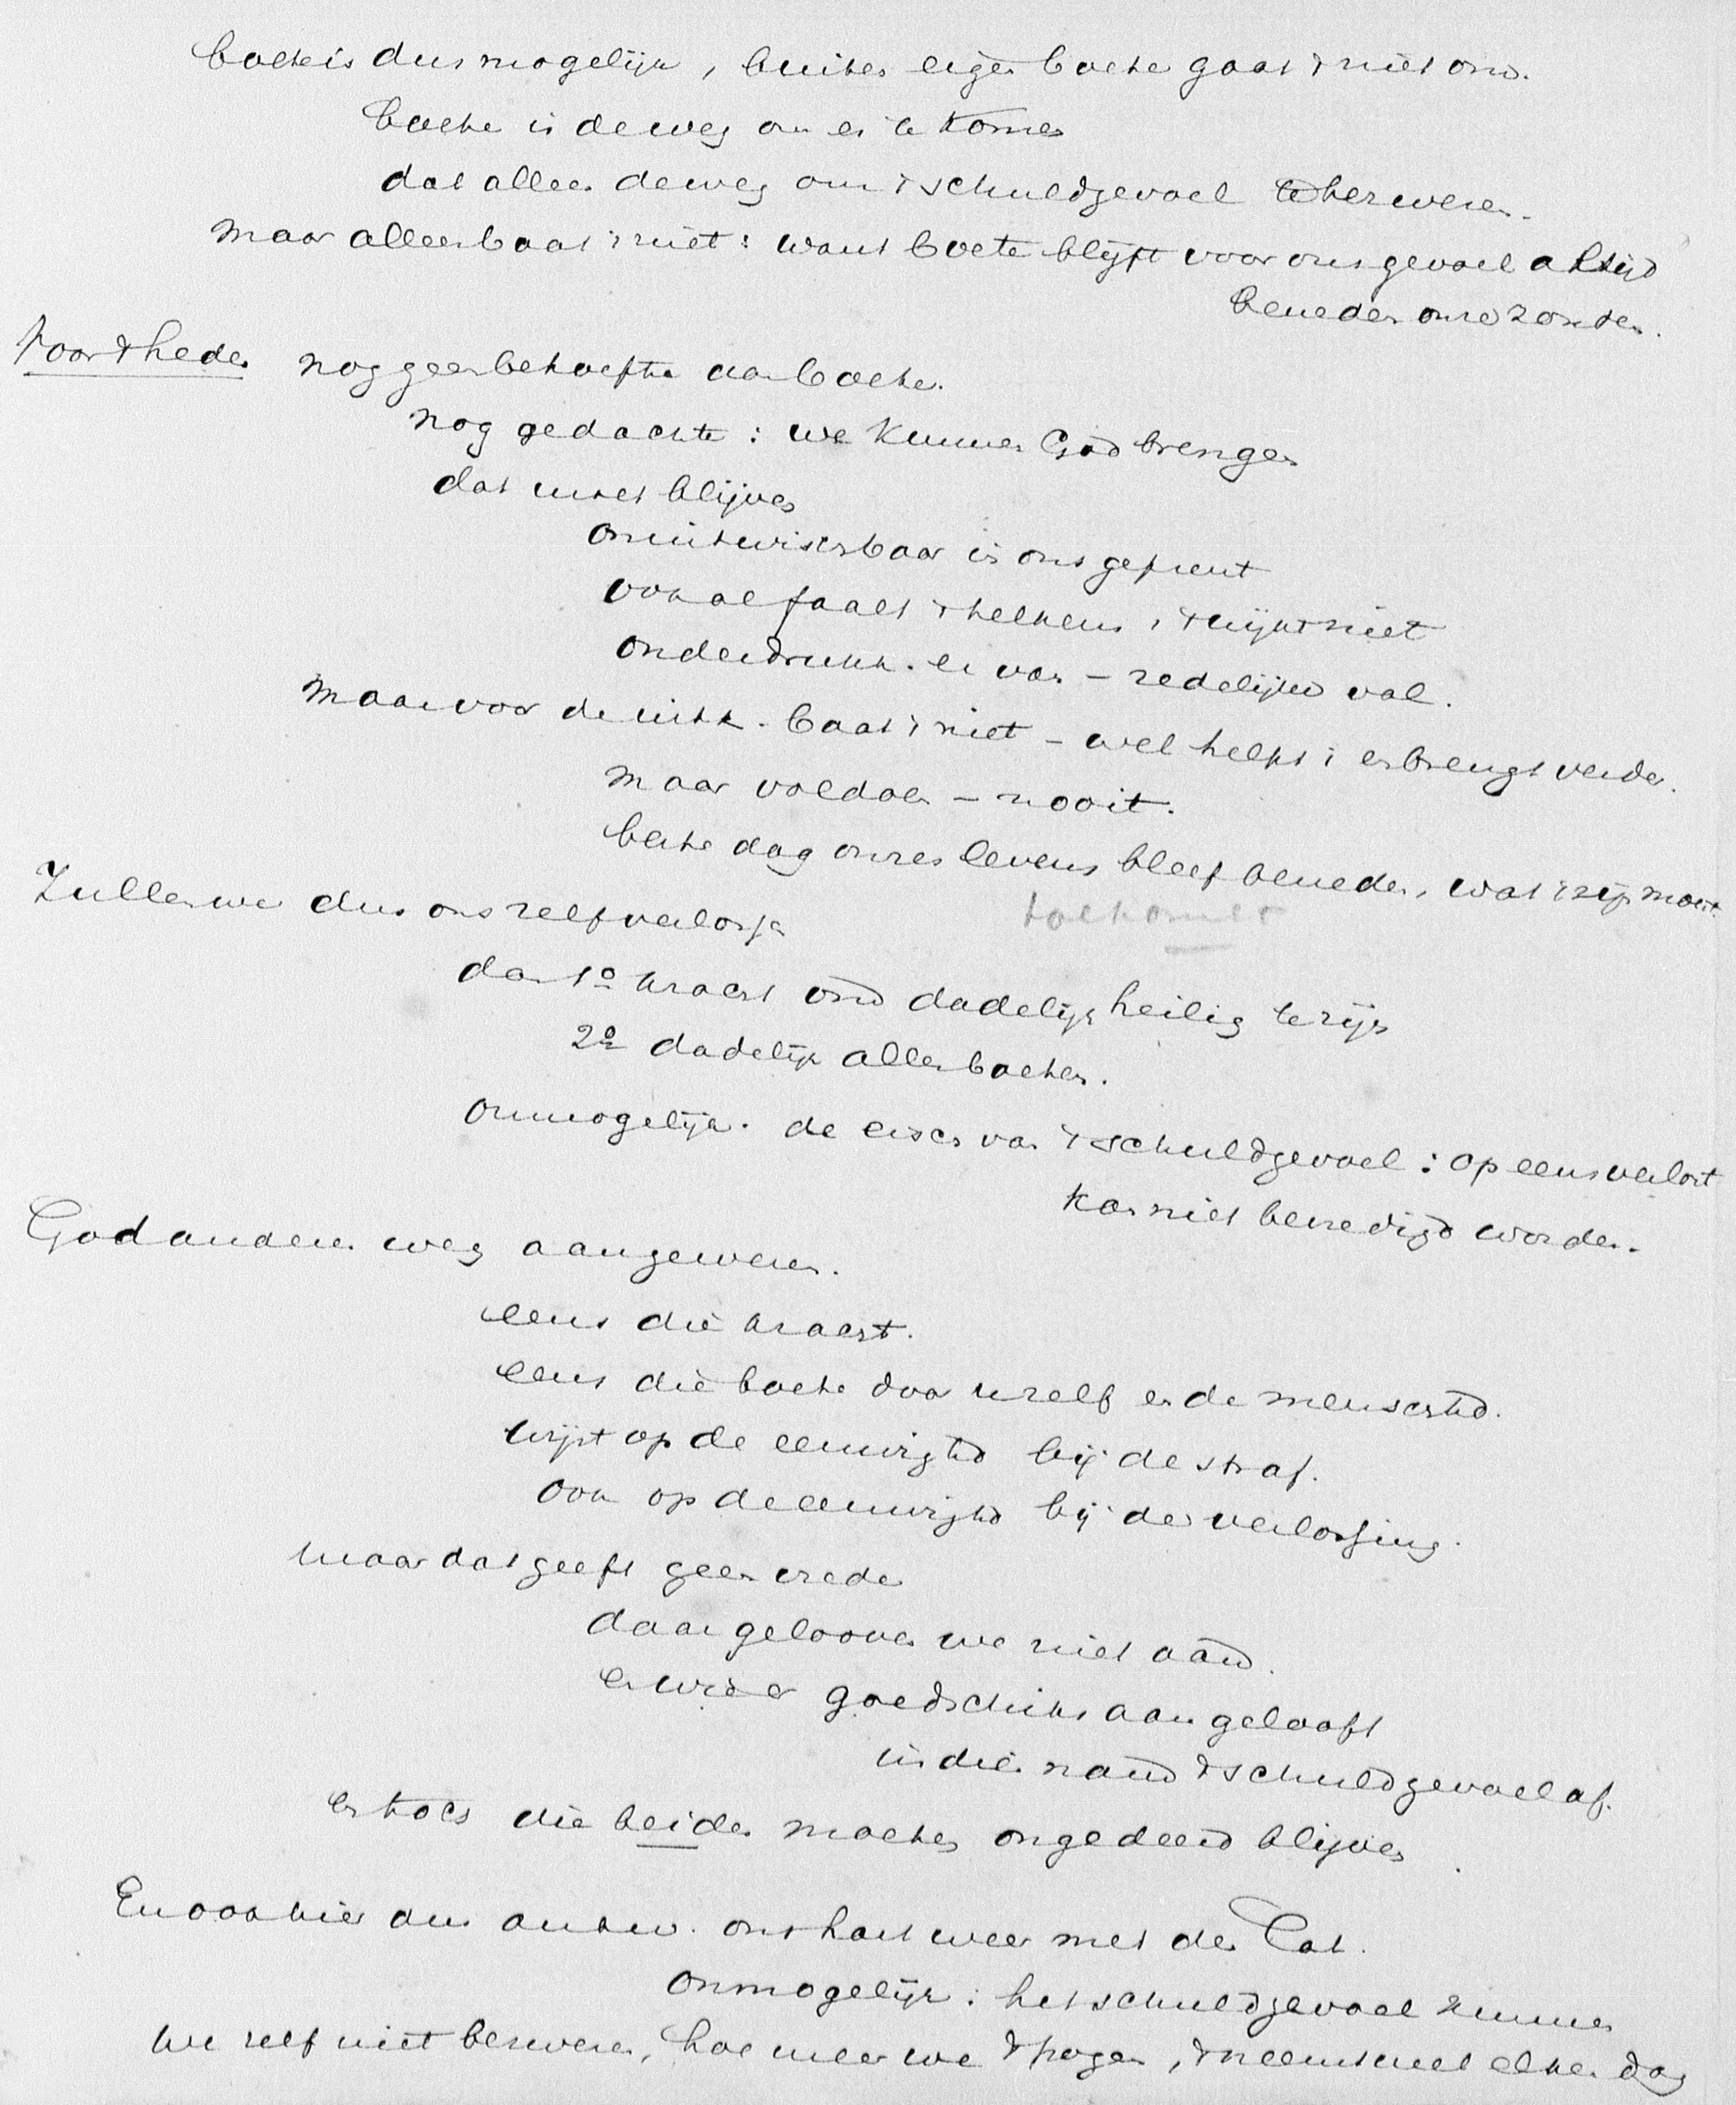 boete is dus mogelijk, buiten eigen boete gaat 't niet om.
boete is de weg om er te komen
dat alleen de weg om 't schuldgevoel te bezweren.
maar alleen baat 't niet: want boete blijft voor ons gevoel altijd
beneden onze zonden.
Voor 't heden nog geen behoefte aan boete.
nog gedachte: we kunnen God brengen
dat moet blijven
onuitwischbaar in ons geprent
ook al faalt 't telkens, 't lijkt niet
onderdrukk. er van – redelijke val.
maar voor de uitk. baat 't niet – wel helpt 't en brengt verder.
maar voldoen – nooit.
beste dag onzes levens bleef beneden, wat 't zijn moest.
toekomst
Zullen we dus ons zelf verlossen
dan 1o kracht om dadelijk heilig te zijn
2o dadelijk alles boeten.
onmogelijk. de eisch van 't schuldgevoel: op eens verlost
kan niet bevredigd worden.
God anderen weg aangewezen.
eens die kracht.
eens die boete door uzelf en de menschhd.
wijst op de eeuwighd bij de straf.
ook op de eeuwighd bij de verlossing.
maar dat geeft geen vrede
daar gelooven we niet aan.
en wie er goedschiks aan gelooft
in dien nam 't schuldgevoel af.
en toch die beiden moeten ongedeerd blijven.
En ook hier dus antw. ons hart weer met den Cat.
onmogelijk: het schuldgevoel kunnen
we zelf niet bezweren, hoe meer we 't pogen, 't neemt met elken dag